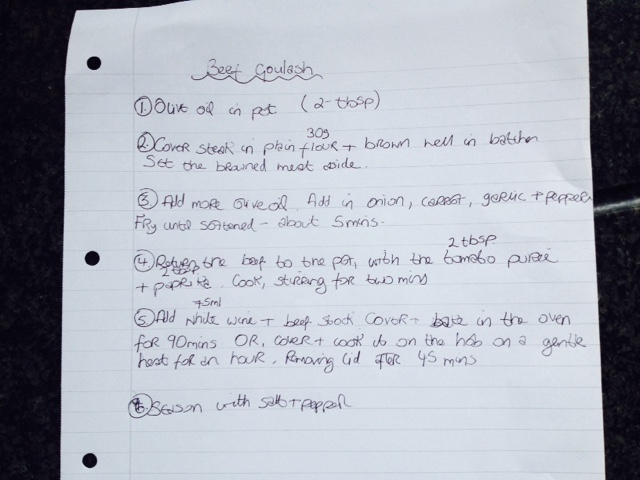 Beef Goulash
① Olive oil in pot (2 tbsp)
30g
② Cover steak in plain flour + brown well in batches
Set the browned meat aside.
③ Add more olive oil. Add in onion, carrot, garlic + pepper
Fry until softened - about 5 mins.
2 tbsp
④ Return the beef to the pot, with the tomato puree
2 tbsp
+ paprika. Cook, stirring for two mins
75ml
⑤ Add white wine + beef stock. Cover + bake in the oven
for 90mins OR, cover + cook on the hob on a gentle
heat for an hour. Removing lid after 45 mins
⑥ Season with salt + pepper